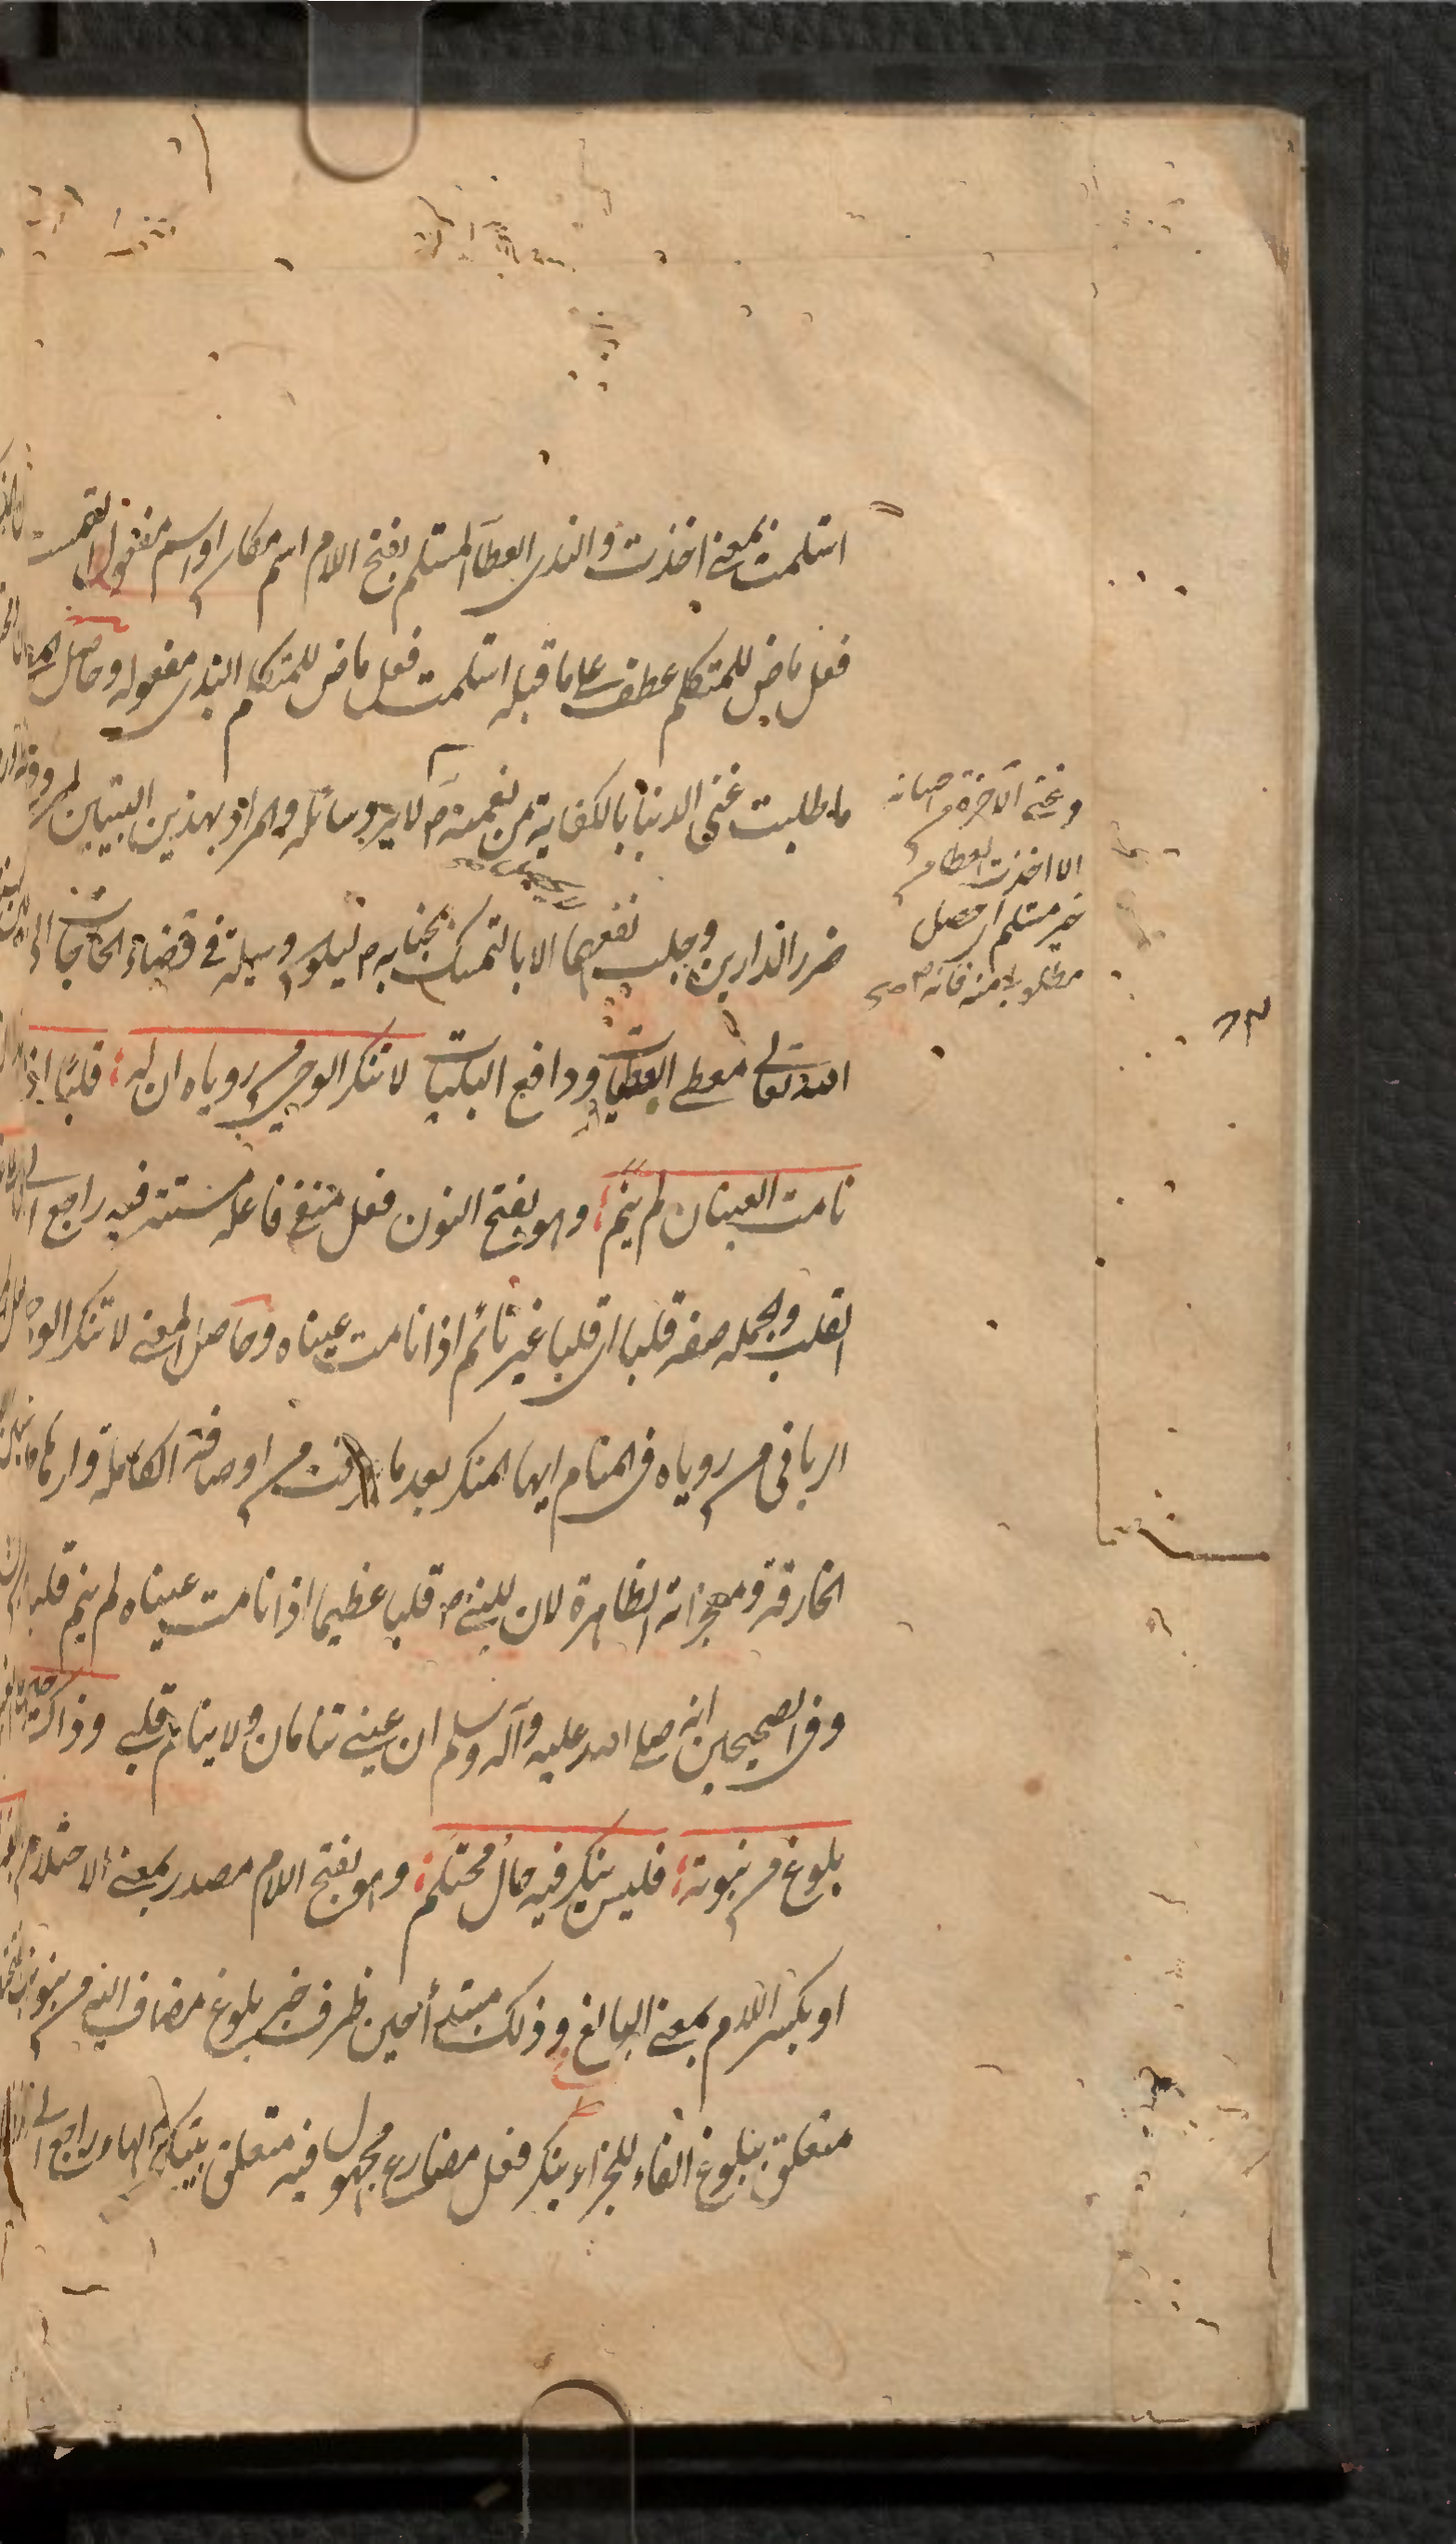 استلمت بمعنى اخذت والندى العطآ المستلم بفتح اللام اسم مكان او اسم مفعول التمست
فعل ماض للمتكلم عطف على ما قبله استلمت فعل ماض للمتكلم الندى مفعوله وحاصل
ما طلبت غنى الدنيا بالكفاية من نعمته لا يرد سائله والمراد بهذين البيتين
ضرر الدارين وجلب نفعهما الا بالتمسك بجنابه م ليكون وسيلة في قضاء الحاجات
الله تعالى معطى العطيات ودافع البليات لا تنكر الوحي من روياه ان له قلبا اذا
نامت العينان لم ينم وهو بفتح النون فعل منفي فاعله مستتر فيه راجع الى
القلب والجملة صفه قلبا اى قلبا غير نائم اذا نامت عيناه وحاصل المعنى لا تنكر
الربانى من روياه في المنام ايها المنكر بعد ما من اوصافه الكاملة
الخارقة ومعجزاته الظاهرة لان للنبي م قلبا عظيما اذا نامت عيناه لم ينم قلبه
وفي الصحيحين انه صلى الله عليه وآله وسلم ان عيني تنامان ولا ينام قلبي وذاك حين
بلوغ من نبوته فليس ينكر فيه حال محتلم وهو بفتح اللام مصدر بمعنى الاحتلام
او بكسر اللام بمعنى البالغ وذلك مبتدأ حين ظرف خبر بلوغ مضاف اليه من نبوته
متعلق ببلوغ الفاء للجزاء ينكر فعل مضارع مجهول فيه متعلق بينكر الهاء راجع الى
وغنى الآخرة
الا اخذت العطا من
خير مستلم اى حصل
مطلوبى منه فانه م صح